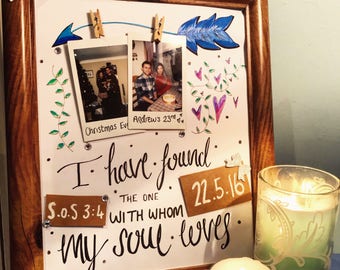 Christmas Eve
Andrew's 23rd
I have found
THE ONE
WITH WHOM
my soul loves
S.o.S 3:4
22.5.16